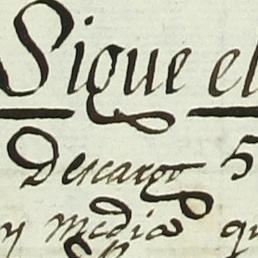 Sigue el
Descargo 5
y media qu